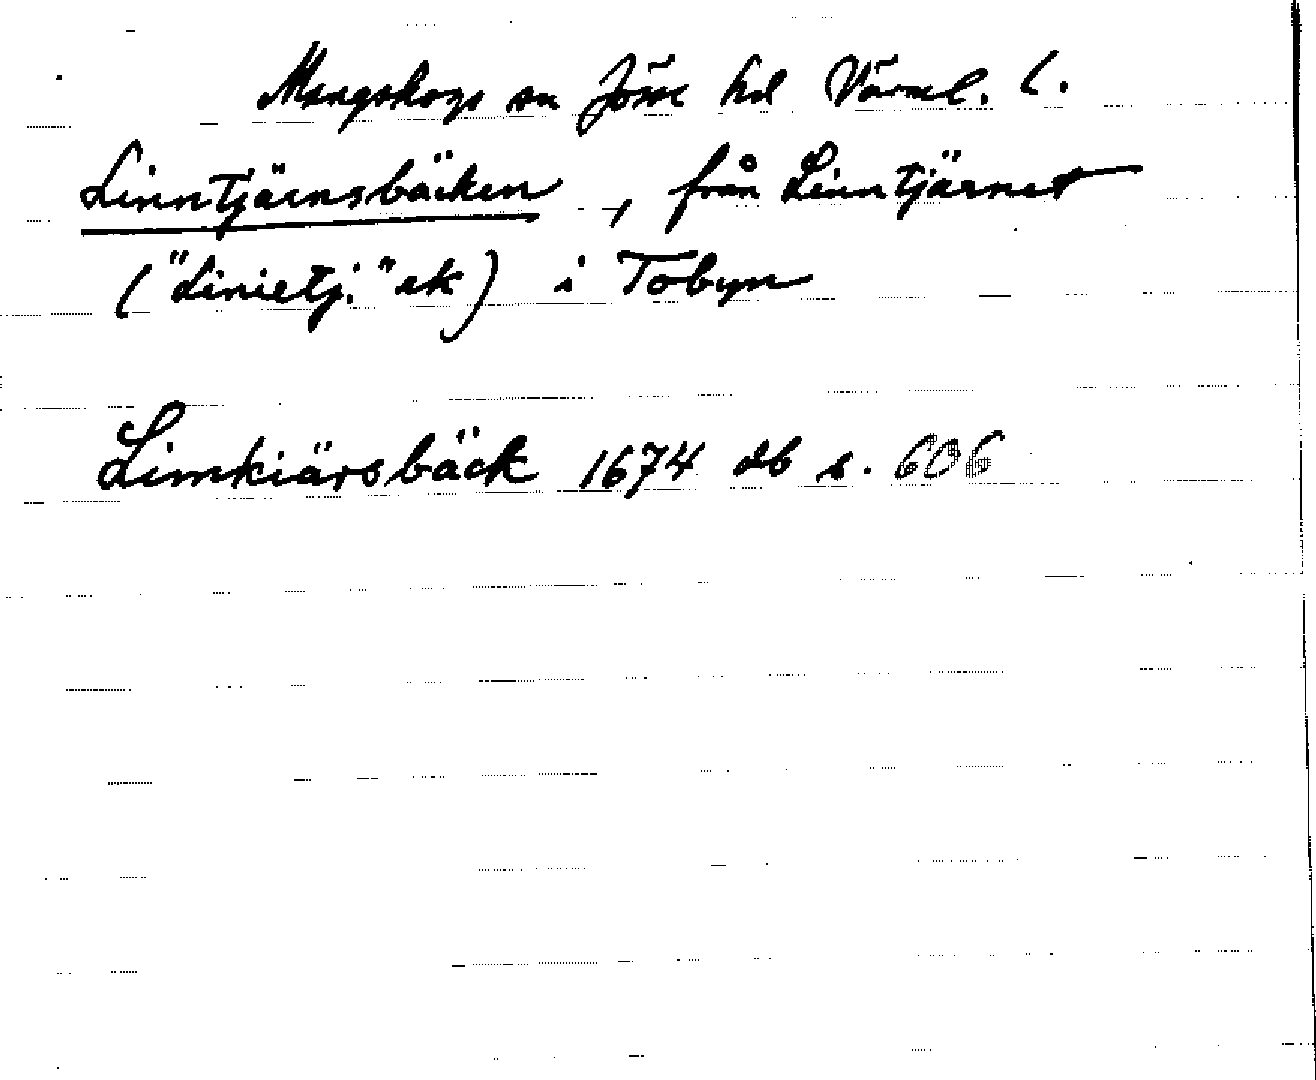 Mangskogs sn Jösse hd Värml. l.
Linntjärnsbäcken, från Linntjärnet
("Linietj." ek) i Tobyn
Limkiärsbäck 1674 db s. 606